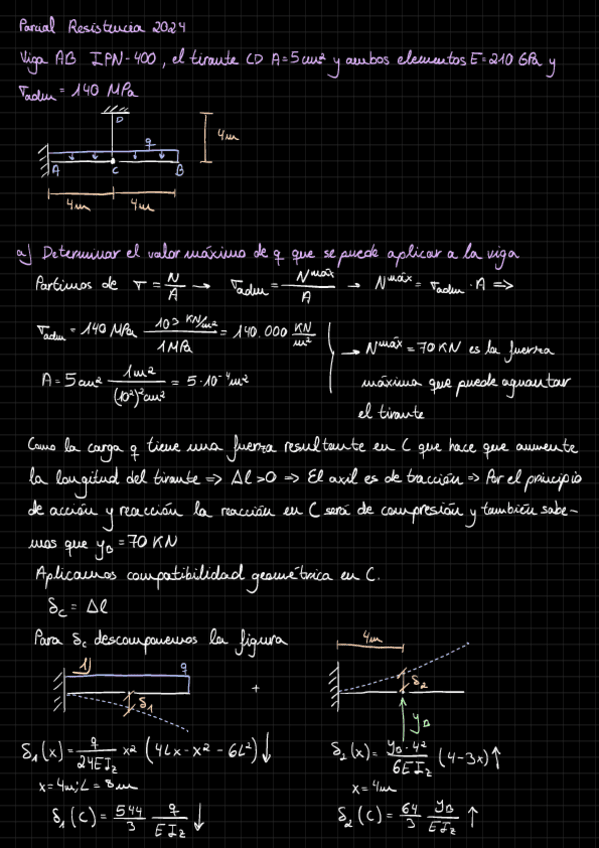 Parcial Resistencia 2024
Viga AB IPN-400, el tirante CD A=5cm² y ambos elementos E=210 GPa y
σadm = 140 MPa
D
q
4m
A
C
B
4m
4m
a) Determinar el valor máximo de q que se puede aplicar a la viga
Partimos de σ = N/A → σadm = Nmáx/A → Nmáx = σadm · A =>
σadm = 140 MPa · 10³ KN/m² / 1 MPa = 140.000 KN/m²
A = 5cm² · 1m² / (10²)² cm² = 5·10⁻⁴ m²
→ Nmáx = 70 KN es la fuerza
máxima que puede aguantar
el tirante
Como la carga q tiene una fuerza resultante en C que hace que aumente
la longitud del tirante => Δl>0 => El axil es de tracción => Por el principio
de acción y reacción la reacción en C será de compresión y también sabe-
mos que yB = 70 KN
Aplicamos compatibilidad geométrica en C.
δc = Δl
Para δc descomponemos la figura
4m
1)
q
δ1
+
δ2
yB
δ1(x) = q/24EIz x² (4Lx - x² - 6L²) ↓
δ2(x) = yB·4²/6EIz (4-3x) ↑
x=4m; L=8m
x=4m
δ1(C) = 544/3 q/EIz ↓
δ2(C) = 64/3 yB/EIz ↑